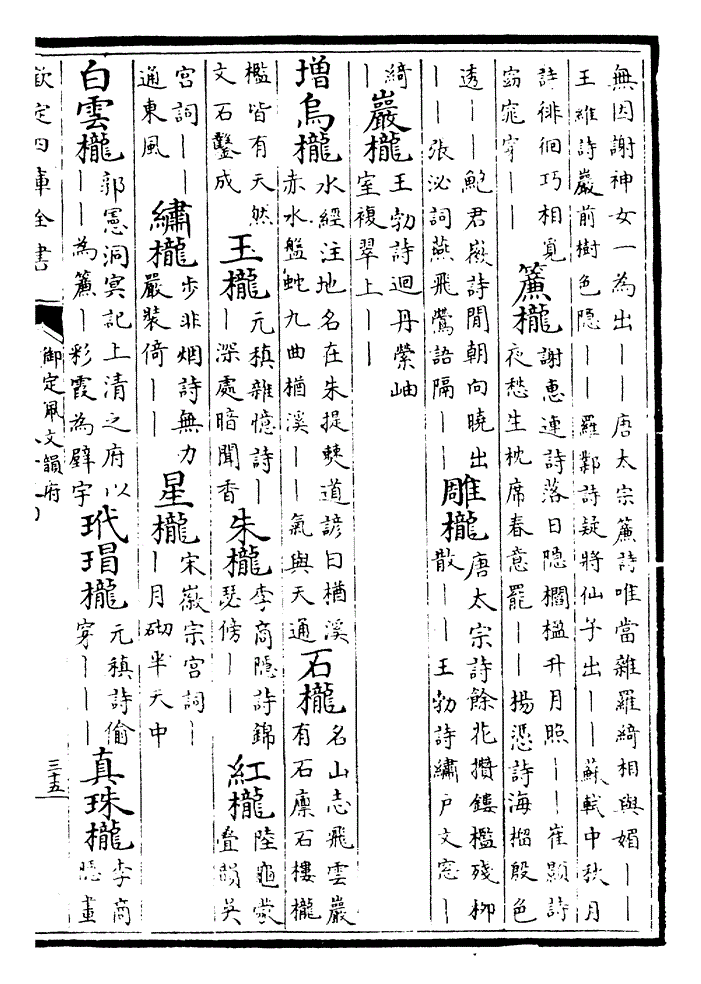 無因謝神女一為出｜｜唐太宗簾詩唯當雜羅綺相與媚｜｜
王維詩巖前樹色隱｜｜羅鄴詩疑將仙子出｜｜蘇軾中秋月
詩徘徊巧相覓
窈窕穿｜｜
簾櫳
謝惠連詩落日隱櫩楹升月照｜｜崔顥詩
夜愁生枕席春意罷｜｜楊憑詩海榴殷色
透｜｜鮑君徽詩閒朝向曉出
｜｜張泌詞燕飛鶯語隔｜｜
雕櫳
唐太宗詩餘花攢鏤檻殘柳
散｜｜王勃詩繡户文窓｜
綺
｜
巖櫳
王勃詩迴丹縈岫
室複翠上｜｜
增烏櫳
水經注地名在朱提道諺曰楢溪
赤水盤蛇九曲楢溪｜｜氣與天通
石櫳
名山志飛雲巖
有石廩石樓櫳
檻皆有天然
文石鑿成
玉櫳
元稹雜憶詩｜
｜深處暗聞香
朱櫳
李商隱詩錦
瑟傍｜｜
紅櫳
陸龜蒙
疊韻吳
宮詞｜｜
通東風
繡櫳
步非烟詩無力
嚴裝倚｜｜
星櫳
宋徽宗宮詞｜
｜月砌半天中
白雲櫳
郭憲洞冥記上清之府以
｜｜為簾｜彩霞為壁宇
玳瑁櫳
元稹詩偷
穿｜｜｜
真珠櫳
李商
隱畫
欽定四庫全書
御定佩文韻府
三十五